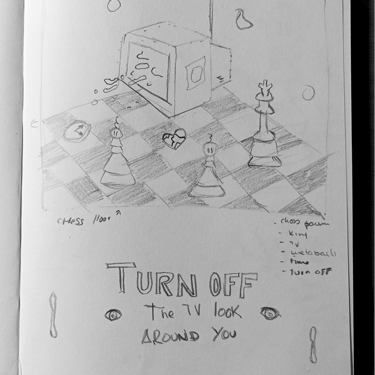 chess floor
- chess pawn
- king
- TV
- time
- Turn OFF
TURN OFF
The TV look
AROUND YOU